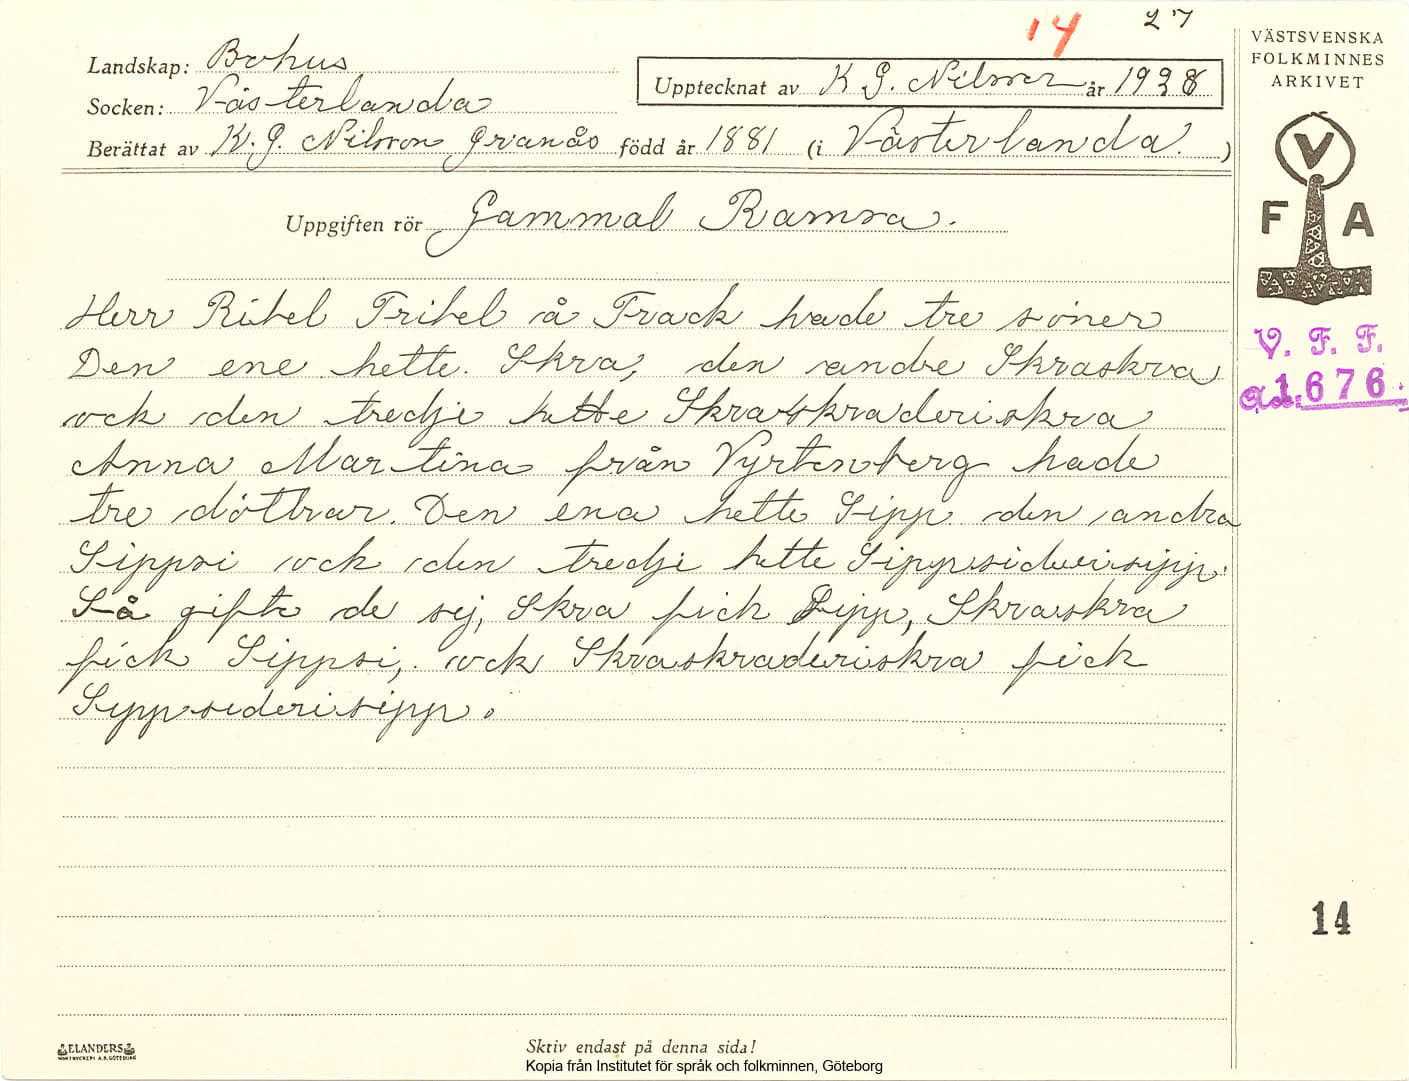 14 27
Landskap: Bohus
Socken: Västerlanda
Upptecknat av K G. Nilsson år 1938
Berättat av K. G. Nilsson Granås född år 1881 (i Västerlanda. )
Uppgiften rör Gammal Ramsa.
Herr Ribel Tribel å Frack hade tre söner
Den ene hette. Skra, den andre Skraskra
ock den tredje hette Skraskraderiskra
Anna Martina från Vyrtenberg hade
tre döttrar. Den ena hette Sipp den andra
Sippsi ock den tredje hette Sippsiderisipp.
Så gifte de sej, Skra fick Sipp, Skraskra
fick Sippsi, ock Skraskraderiskra fick
Sippsiderisipp.
VÄSTSVENSKA
FOLKMINNES
ARKIVET
V
F A
V. F. F.
1676
14
ELANDERS
Skriv endast på denna sida!
Kopia från Institutet för språk och folkminnen, Göteborg